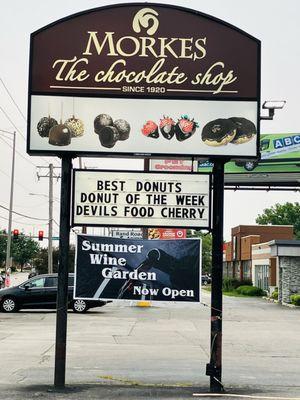 MORKES
The chocolate shop
SINCE 1920
BEST DONUTS
DONUT OF THE WEEK
DEVILS FOOD CHERRY
Summer
Wine
Garden
Now Open
PET
Grooming
ABC